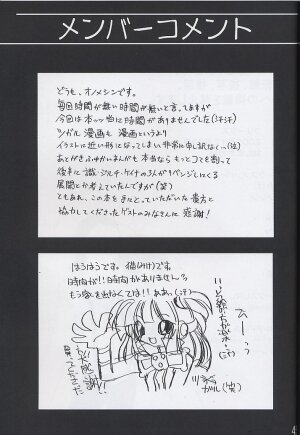 メンバーコメント
どうも、オノメシンです。
毎回時間が無い時間が無いと言ってますが
今回は本ッッ当に時間がありませんでした
ツガル漫画も漫画というより
イラストに近い形になってしまい非常に申し訳なく、(泣)
あとがきふゆかいまんがも本当ならもっとコマを割って
後半に識・シルチ・ケイナの3人が1ページにくる
展開とか考えていたんですが(笑)
ともあれ、この本を手にとっていただいた貴方と
協力してくださったゲストのみなさんに感謝!
はうはうです。猫(みけ)です。
時間が!!時間がありませんっ
もう家を出なくては!!ああっ
ひーっっ
ツガル(笑)
4